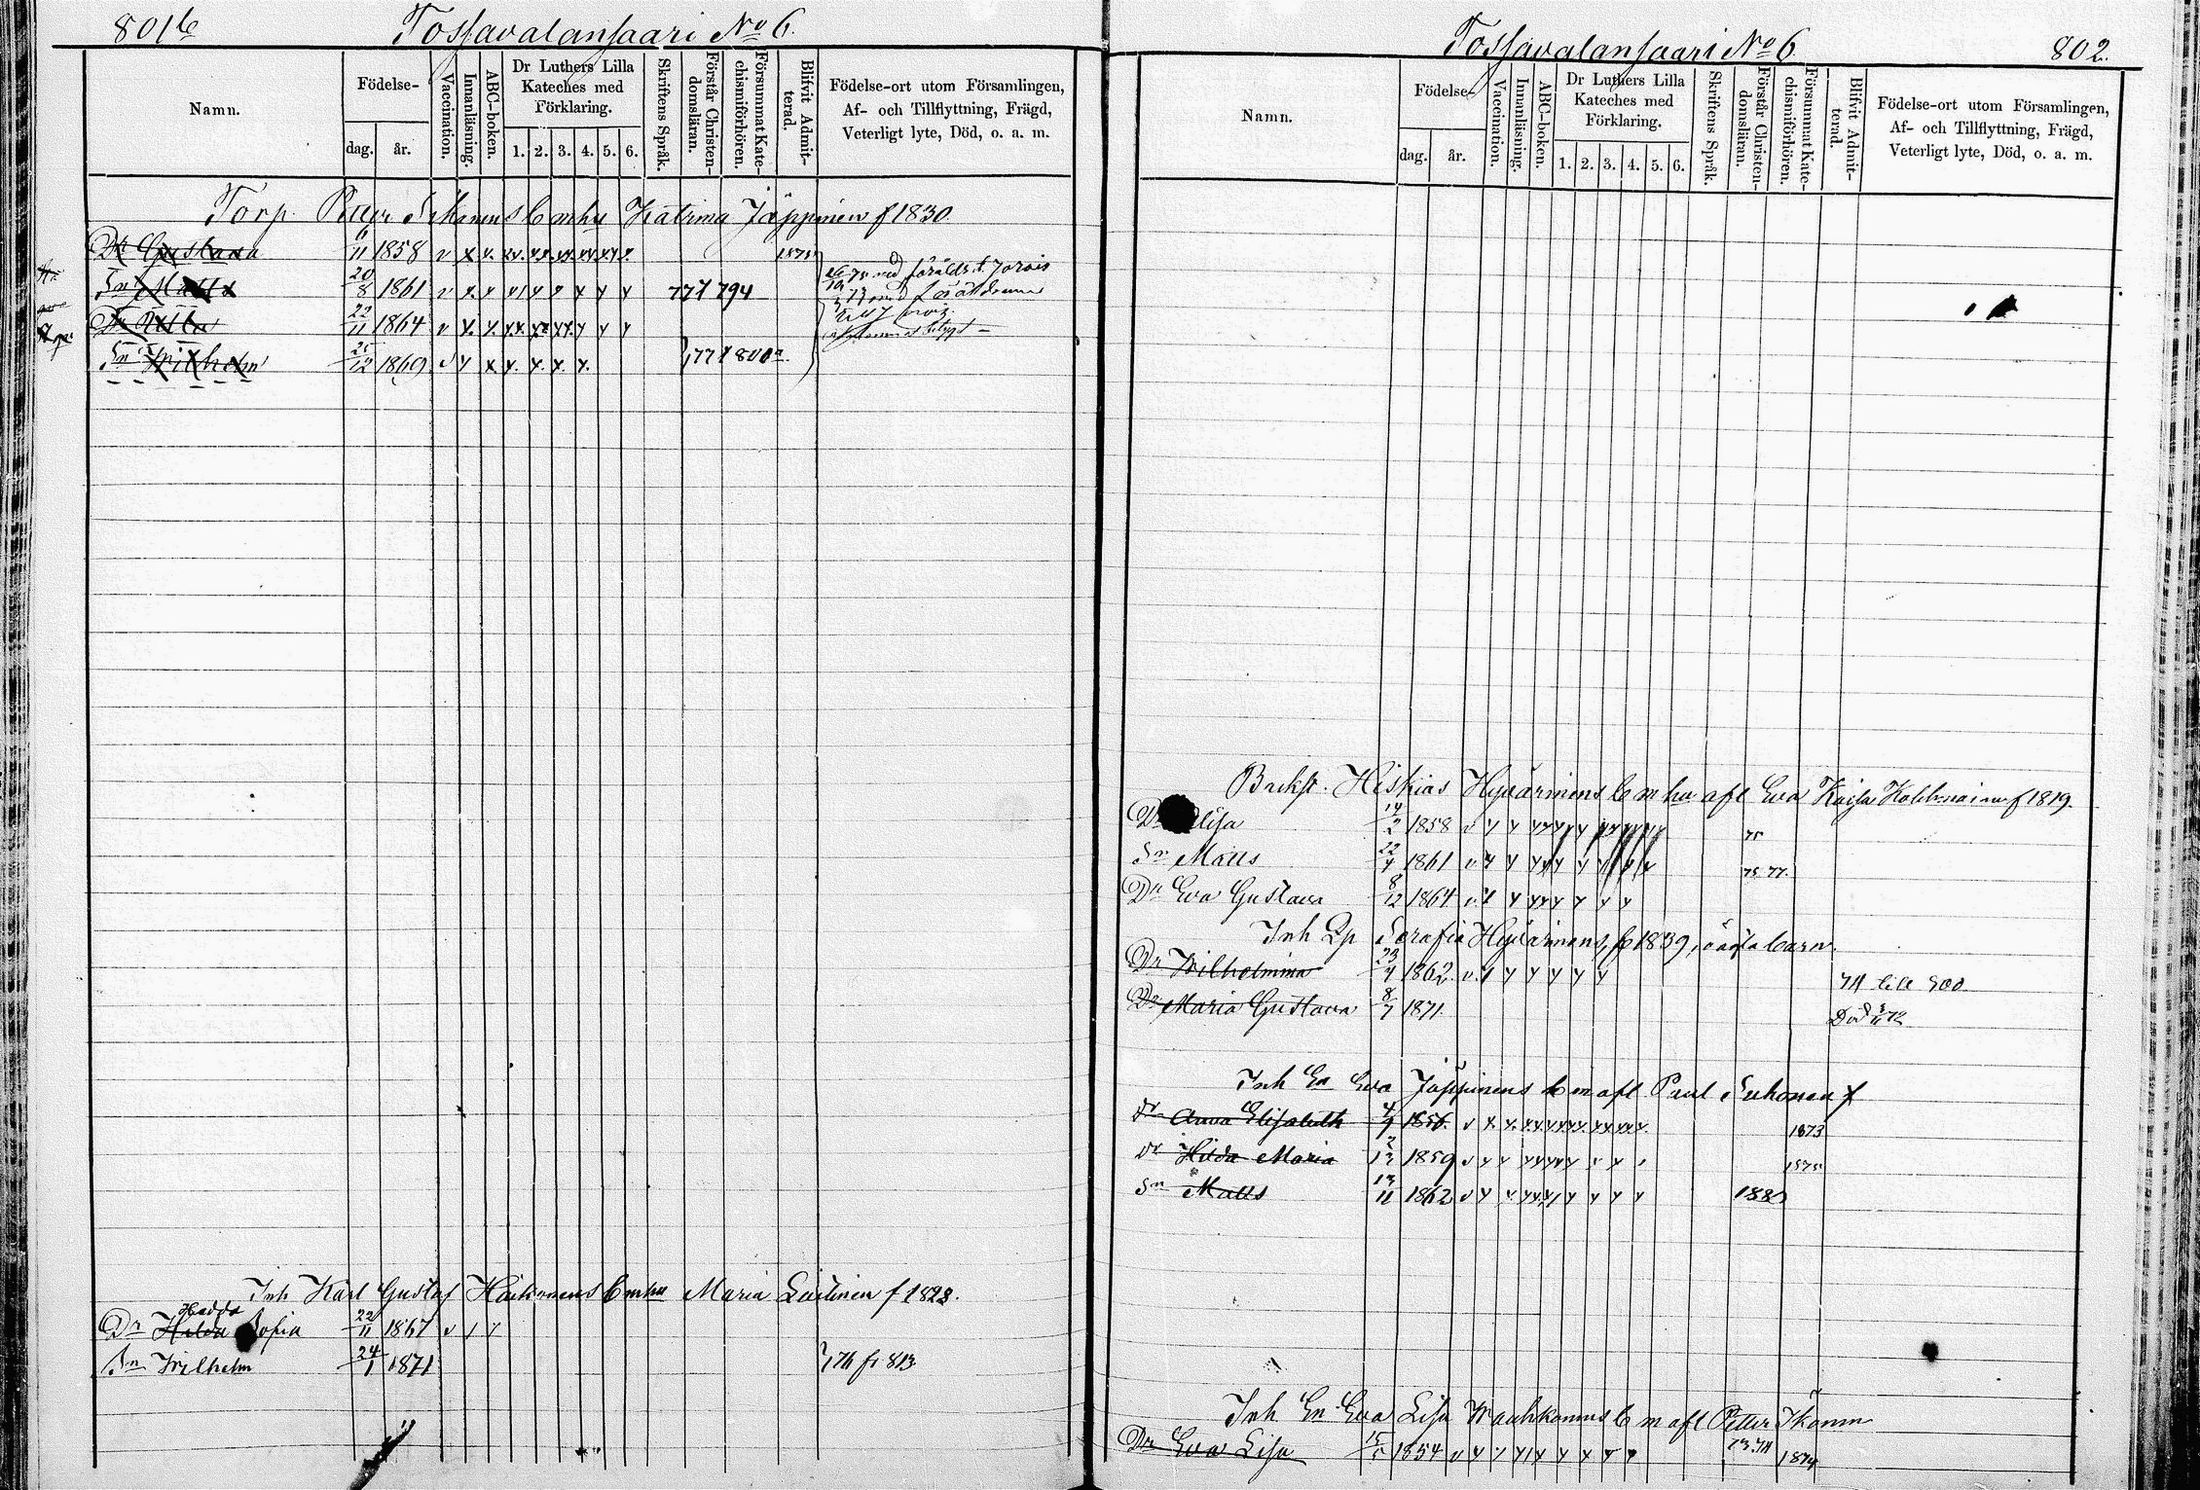 801b Tossavalansaari No 6.
Namn.
Födelse-
dag. år.
Vaccination.
Innanläsning.
ABC-boken.
Dr Luthers Lilla
Kateches med
Förklaring.
1. 2. 3. 4. 5. 6.
Skriftens Språk.
Förstår Christen-
domsläran.
Försummat Kate-
chismiförhören.
Blifvit Admit-
terad.
Födelse-ort utom Församlingen,
Af- och Tillflyttning, Frägd,
Veterligt lyte, Död, o. a. m.
Torp. Petter b m hu Katrina Jäppinen f 1830
Dr Gustava 6/11 1858 v 1875
Sn Matts 20/8 1861 v 771 794
Dr 22/11 1864 v
Sn Wilhelm 25/12 1869 v
Inh Karl Gustaf b m hu Maria f 1828.
Hedda
Dr Hilda Sofia 22/11 1867 v
Sn Wilhelm 24/1 1871 76 fr 813
Tossavalansaari No 6 802.
Namn.
Födelse-
dag. år.
Vaccination.
Innanläsning.
ABC-boken.
Dr Luthers Lilla
Kateches med
Förklaring.
1. 2. 3. 4. 5. 6.
Skriftens Språk.
Förstår Christen-
domsläran.
Försummat Kate-
chismiförhören.
Blifvit Admit-
terad.
Födelse-ort utom Församlingen,
Af- och Tillflyttning, Frägd,
Veterligt lyte, Död, o. a. m.
Hiskias Hyvärinens b m hu afl Eva Kaisa f 1819.
Dr 14/2 1858 v 75
Sn Matts 22/4 1861 v 75 77.
Dr Eva Gustava 8/12 1864 v
Inh Qp Serafia Hyvärinens, f 1839, oägta barn.
Dr Wilhelmina 23/4 1862 v 74 till 900
Dr Maria Gustava 8/7 1871. Död 72
Inh En Eva Jäppinens b m afl Paul Suhonen
dr Anna Elisabeth 4/9 1856. v 1873
dr Hilda Maria 2/12 1859 v 1875
Sn Matts 13/11 1862 v 1880
Inh En Eva Lisa b m afl Petter Ikonen
Dr Eva Lisa 1854 v 73 74 1874